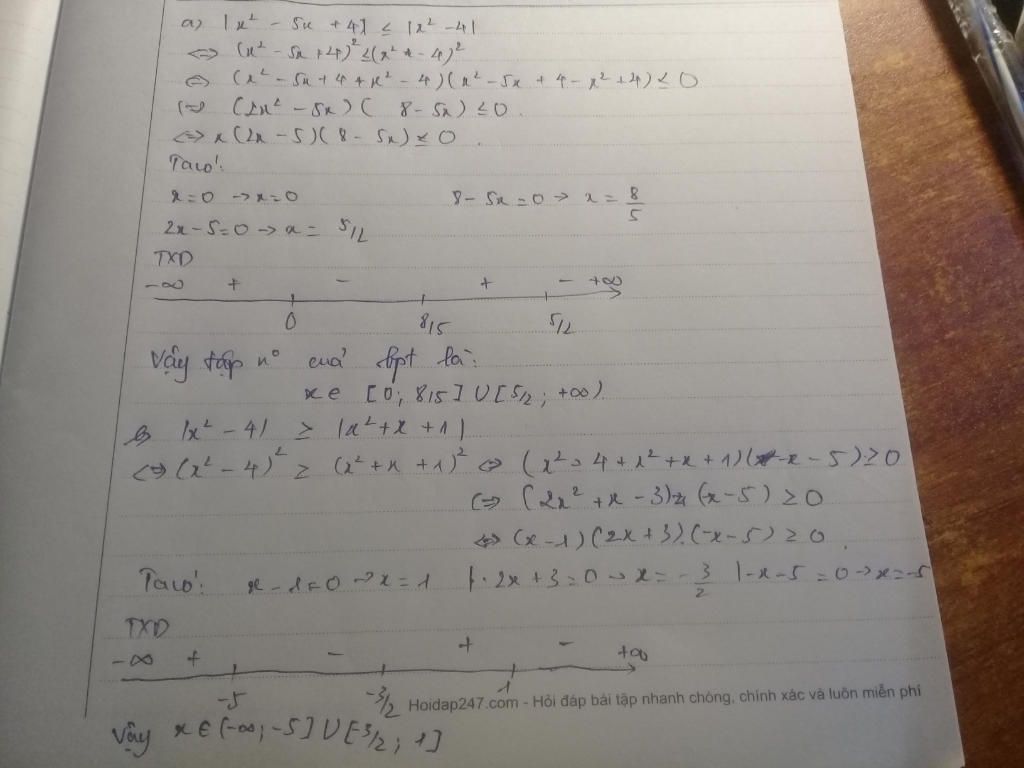 a) |x² - 5x + 4| ≤ |x² - 4|
⇔ (x² - 5x + 4)² ≤ (x² - 4)²
⇔ (x² - 5x + 4 + x² - 4)(x² - 5x + 4 - x² + 4) ≤ 0
⇔ (2x² - 5x)( 8 - 5x) ≤ 0.
⇔ x(2x - 5)(8 - 5x) ≤ 0.
Ta có:
x = 0 → x = 0 8 - 5x = 0 → x = 8/5
2x - 5 = 0 → x = 5/2
TXD
-∞ + - + - +∞
0 8/5 5/2
Vậy tập n° cuả bpt là:
x ∈ [0; 8/5] ∪ [5/2; +∞).
b |x² - 4| ≥ |x² + x + 1|
⇔ (x² - 4)² ≥ (x² + x + 1)² ⇔ (x² - 4 + x² + x + 1)(-x - 5) ≥ 0
⇔ (2x² + x - 3) (-x - 5) ≥ 0
⇔ (x - 1)(2x + 3).(-x - 5) ≥ 0.
Ta có: x - 1 = 0 → x = 1 |. 2x + 3 = 0 → x = -3/2 | -x - 5 = 0 → x = -5
TXD
-∞ + - + - +∞
-5 -3/2 1
Hoidap247.com - Hỏi đáp bài tập nhanh chóng, chính xác và luôn miễn phí
Vậy x ∈ (-∞; -5] ∪ [-3/2; 1]